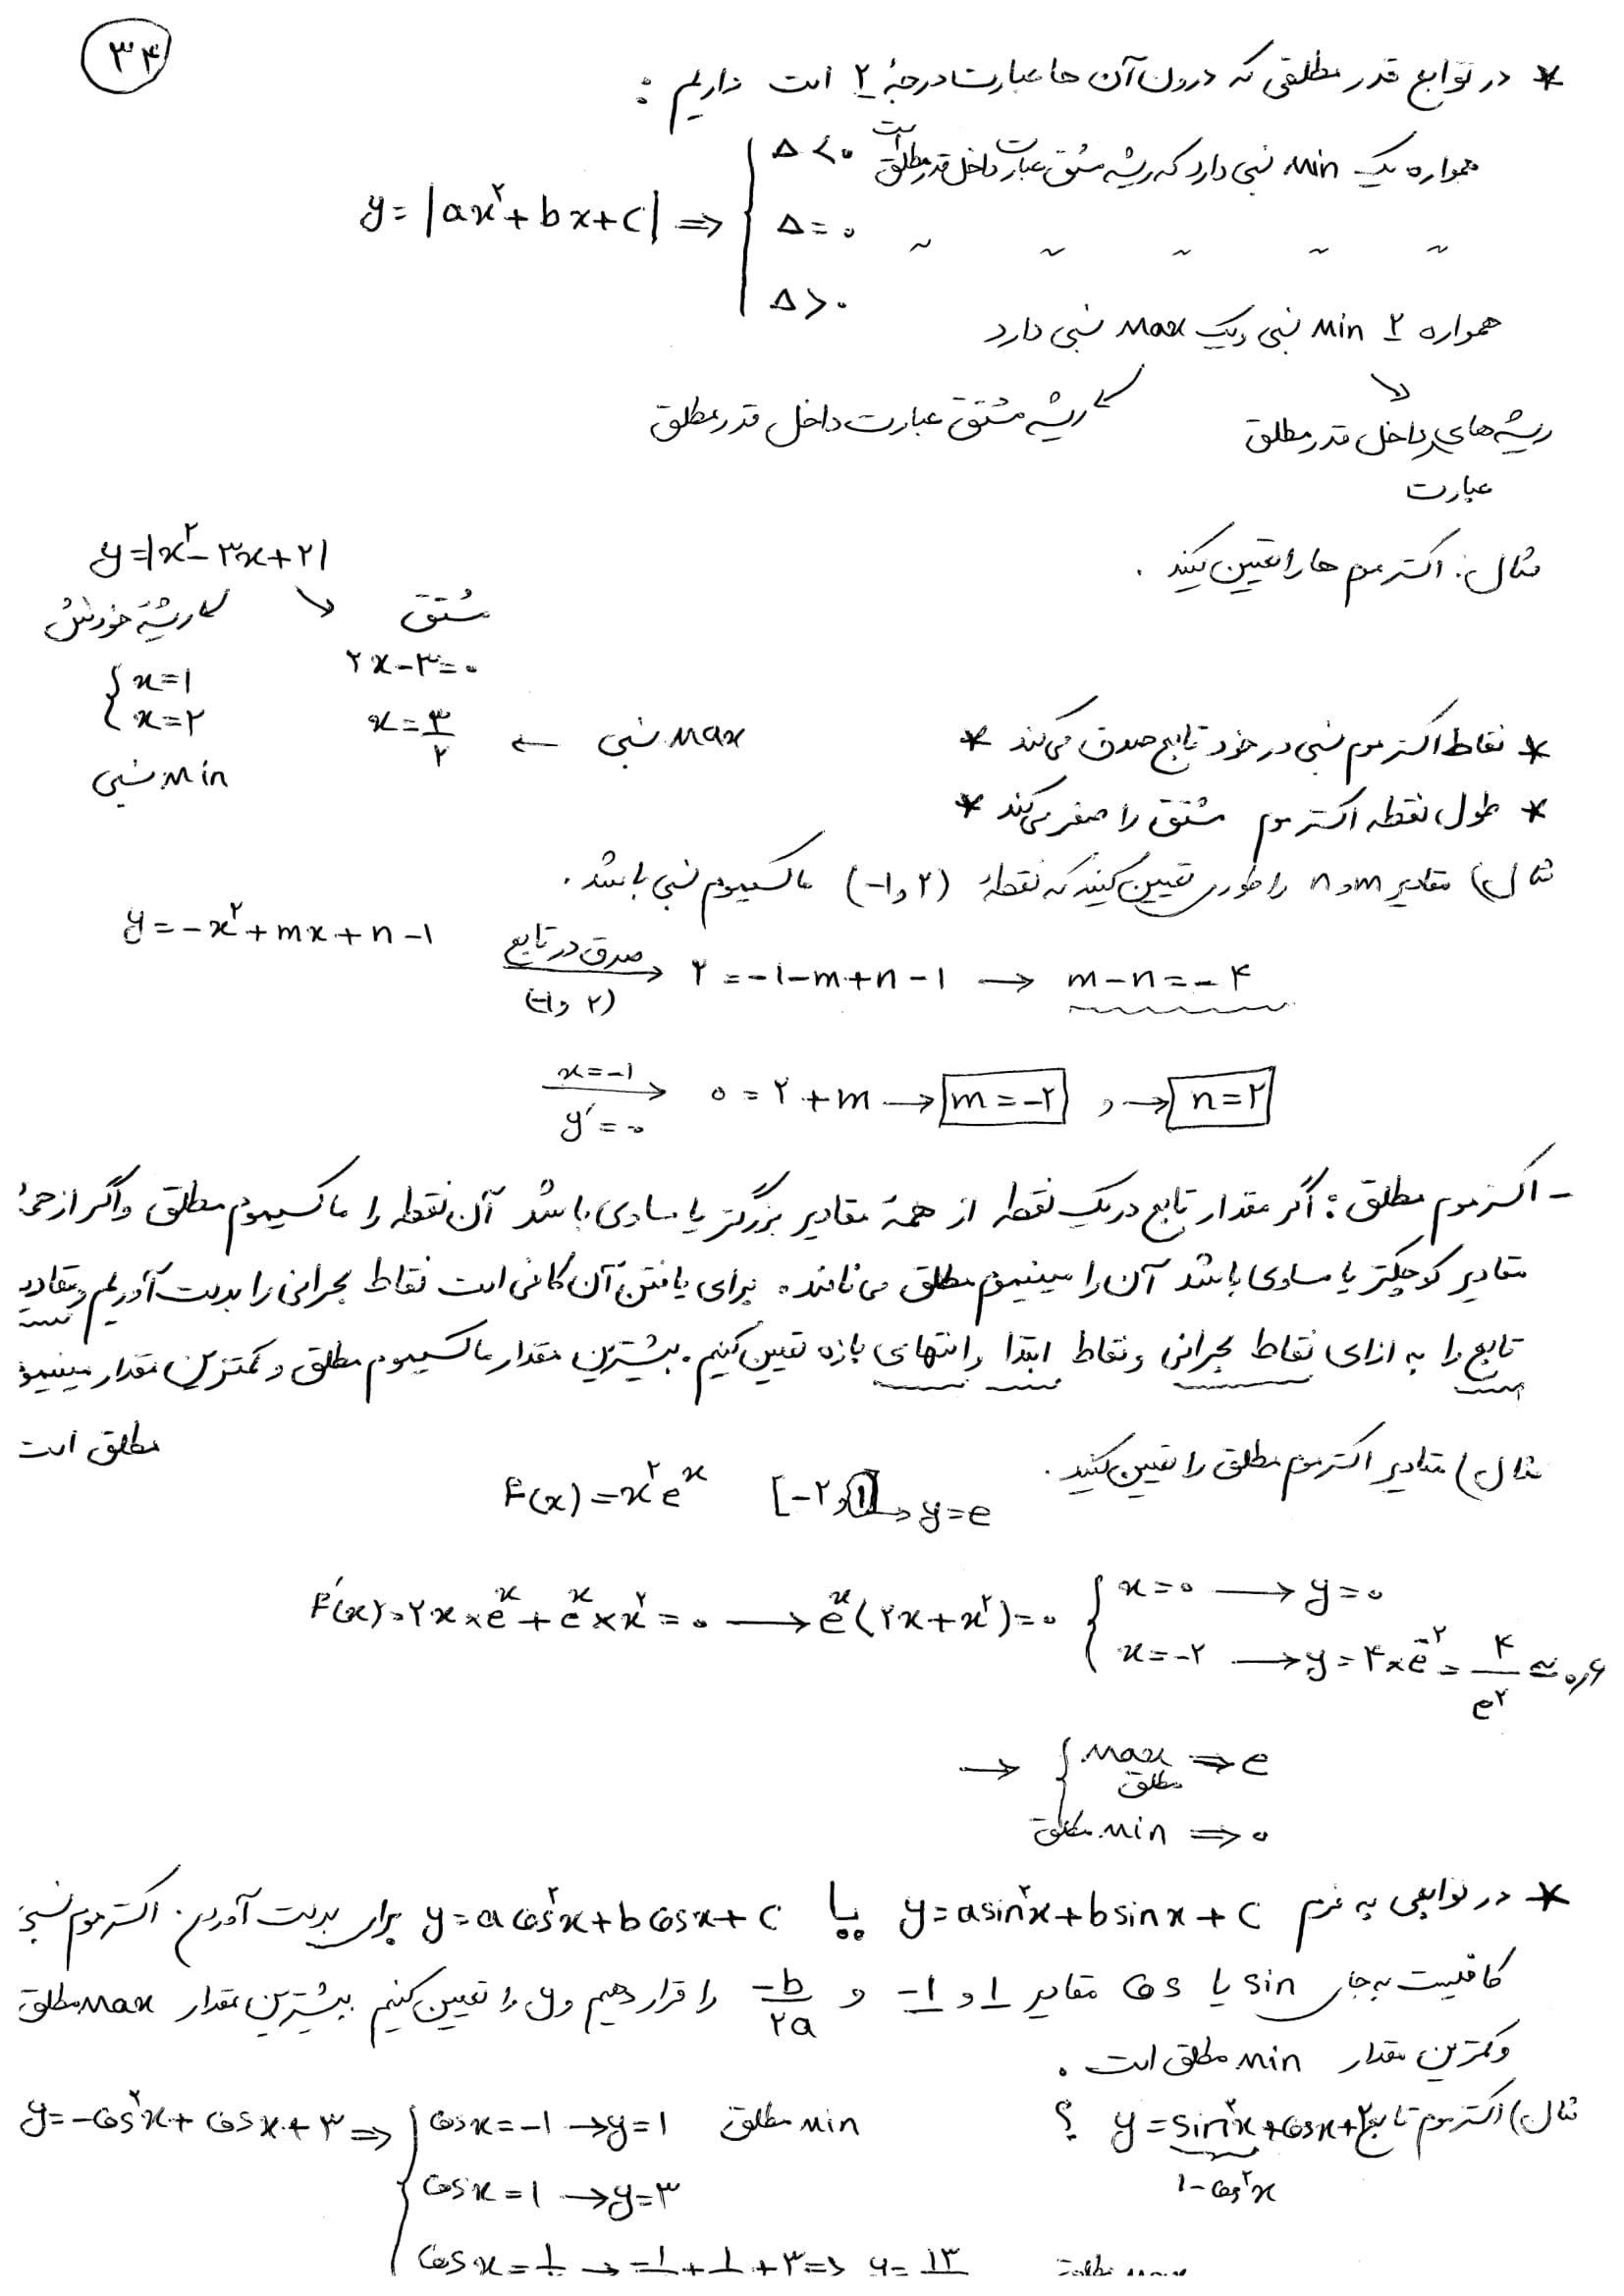 ۳۴
* در توابع قدر مطلقی که درون آن ها عبارت درجهٔ ۲ است داریم :
y = |ax²+bx+c| ⇒ { Δ<۰ همواره یک Min نسبی دارد که ریشه مشتق عبارت داخل قدرمطلق است
Δ=۰ ~ ~ ~ ~ ~
Δ>۰
همواره ۲ Min نسبی و یک Max نسبی دارد
ریشه های عبارت داخل قدرمطلق
ریشه مشتق عبارت داخل قدرمطلق
مثال: اکسترموم ها را تعیین کنید .
y=|x²-۳x+۲|
مشتق ریشهٔ خودش
۲x-۳=۰ { x=۱
x=۲
x=۳/۲ ← Max نسبی
Min نسبی
* نقاط اکسترموم نسبی در خود تابع صدق می‌کند *
* طول نقطه اکسترموم مشتق را صفر می‌کند *
مثال) مقادیر m و n را طوری تعیین کنید که نقطهٔ (-۱و۲) ماکسیموم نسبی باشد .
y = -x² + mx + n - ۱
صدق در تابع (-۱و۲) → ۲ = -۱-m+n-۱ → m-n=-۴
x=-۱ y'=۰ → ۰ = ۲+m → m=-۲ و → n=۲
- اکسترموم مطلق : اگر مقدار تابع در یک نقطه از همهٔ مقادیر بزرگتر یا مساوی باشد آن نقطه را ماکسیموم مطلق و اگر از همهٔ
مقادیر کوچکتر یا مساوی باشد آن را مینیموم مطلق می نامند . برای یافتن آن کافی است نقاط بحرانی را بدست آوریم و مقادیر
تابع را به ازای نقاط بحرانی و نقاط ابتدا و انتهای بازه تعیین کنیم . بیشترین مقدار ماکسیموم مطلق و کمترین مقدار مینیموم
مطلق است
مثال) مقادیر اکسترموم مطلق را تعیین کنید .
F(x) = x²eˣ [-۲و۱] → y=e
F'(x) = ۲x × eˣ + eˣ × x² = ۰ → eˣ(۲x+x²)=۰ { x=۰ → y=۰
x=-۲ → y=۴×e⁻² = ۴/e² ≃
→ { Max مطلق ⇒ e
Min مطلق ⇒ ۰
* در توابعی به فرم y=asin²x+bsinx+c یا y=acos²x+bcosx+c برای بدست آوردن اکسترموم نسبی
کافیست به جای sin یا cos مقادیر ۱ و -۱ و -b/۲a را قرار دهیم و y را تعیین کنیم بیشترین مقدار Max مطلق
و کمترین مقدار Min مطلق است .
مثال) اکسترموم تابع y=sin²x+cosx+۲ ؟
۱-cos²x
y=-cos²x+cosx+۳ ⇒ { cosx=-۱ → y=۱ Min مطلق
cosx=۱ → y=۳